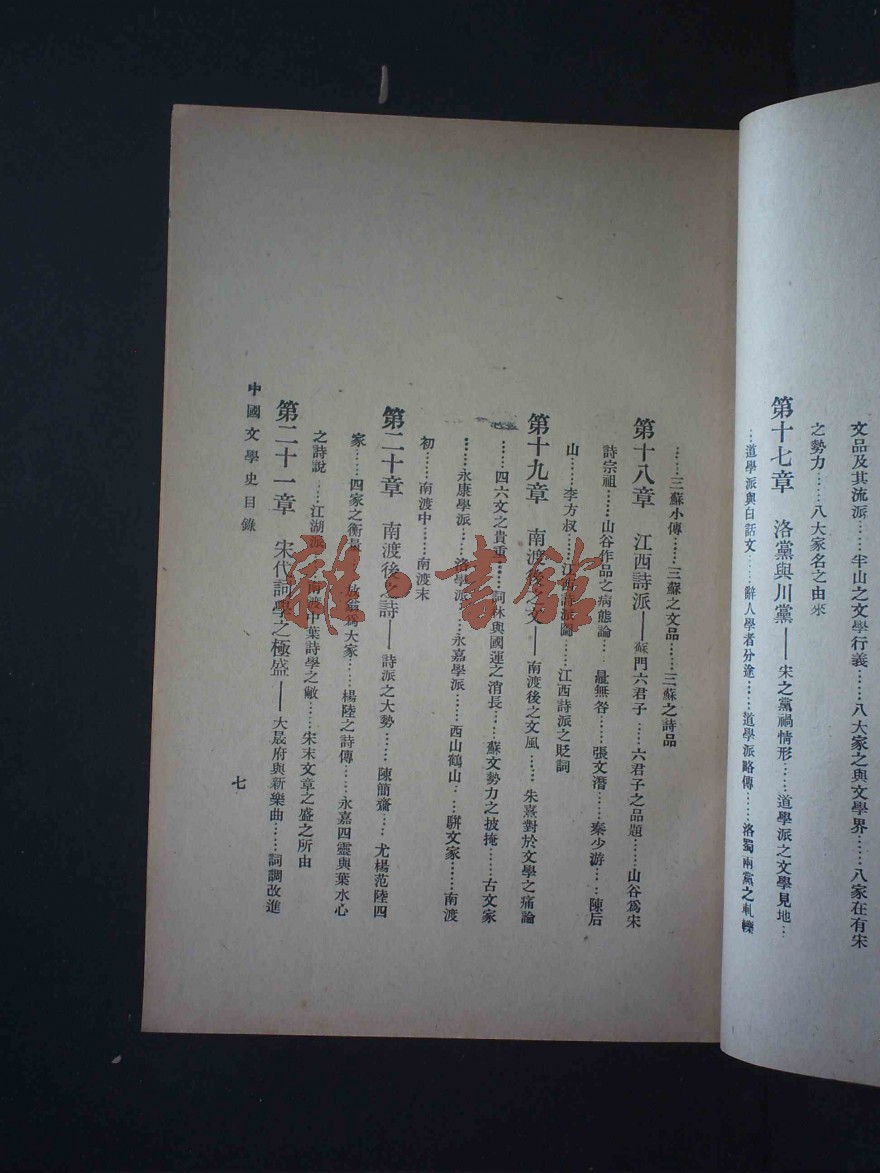 文品及其流派……半山之文學行義……八大家之與文學界……八家在有宋
之勢力……八大家名之由來
第十七章　洛黨與川黨——宋之黨禍情形……道學派之文學見地…
…道學派與白話文……辭人學者分途……道學派略傳……洛蜀兩黨之軋轢
……三蘇小傳……三蘇之文品……三蘇之詩品
第十八章　江西詩派——蘇門六君子……六君子之品題……山谷爲宋
詩宗祖……山谷作品之病態論……鼂無咎……張文潛……秦少游……陳后
山……李方叔……江西詩派圖……江西詩派之貶詞
第十九章　南渡後之文——南渡後之文風……朱熹對於文學之痛論
……四六文之貴重……詞林與國運之消長……蘇文勢力之披掩……古文家
……永康學派……洛學派……永嘉學派……西山鶴山……駢文家……南渡
初……南渡中……南渡末
第二十章　南渡後之詩——詩派之大勢……陳簡齋……尤楊范陸四
家……四家之衡量……放翁爲大家……楊陸之詩傳……永嘉四靈與葉水心
之詩說……江湖派……南渡中葉詩學之敝……宋末文章之盛之所由
第二十一章　宋代詞學之極盛——大晟府與新樂曲……詞調改進
中國文學史目錄
七
雜·書館